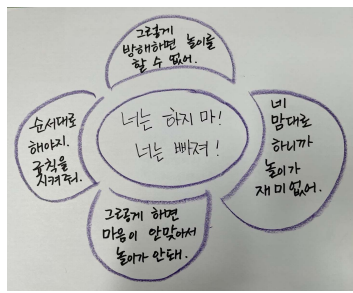 그렇게
방해하면 놀이를
할 수 없어.
순서대로
해야지.
규칙을
지켜줘.
너는 하지 마!
너는 빠져!
네
맘대로
하니까
놀이가
재미없어.
그렇게 하면
마음이 안맞아서
놀이가 안돼.